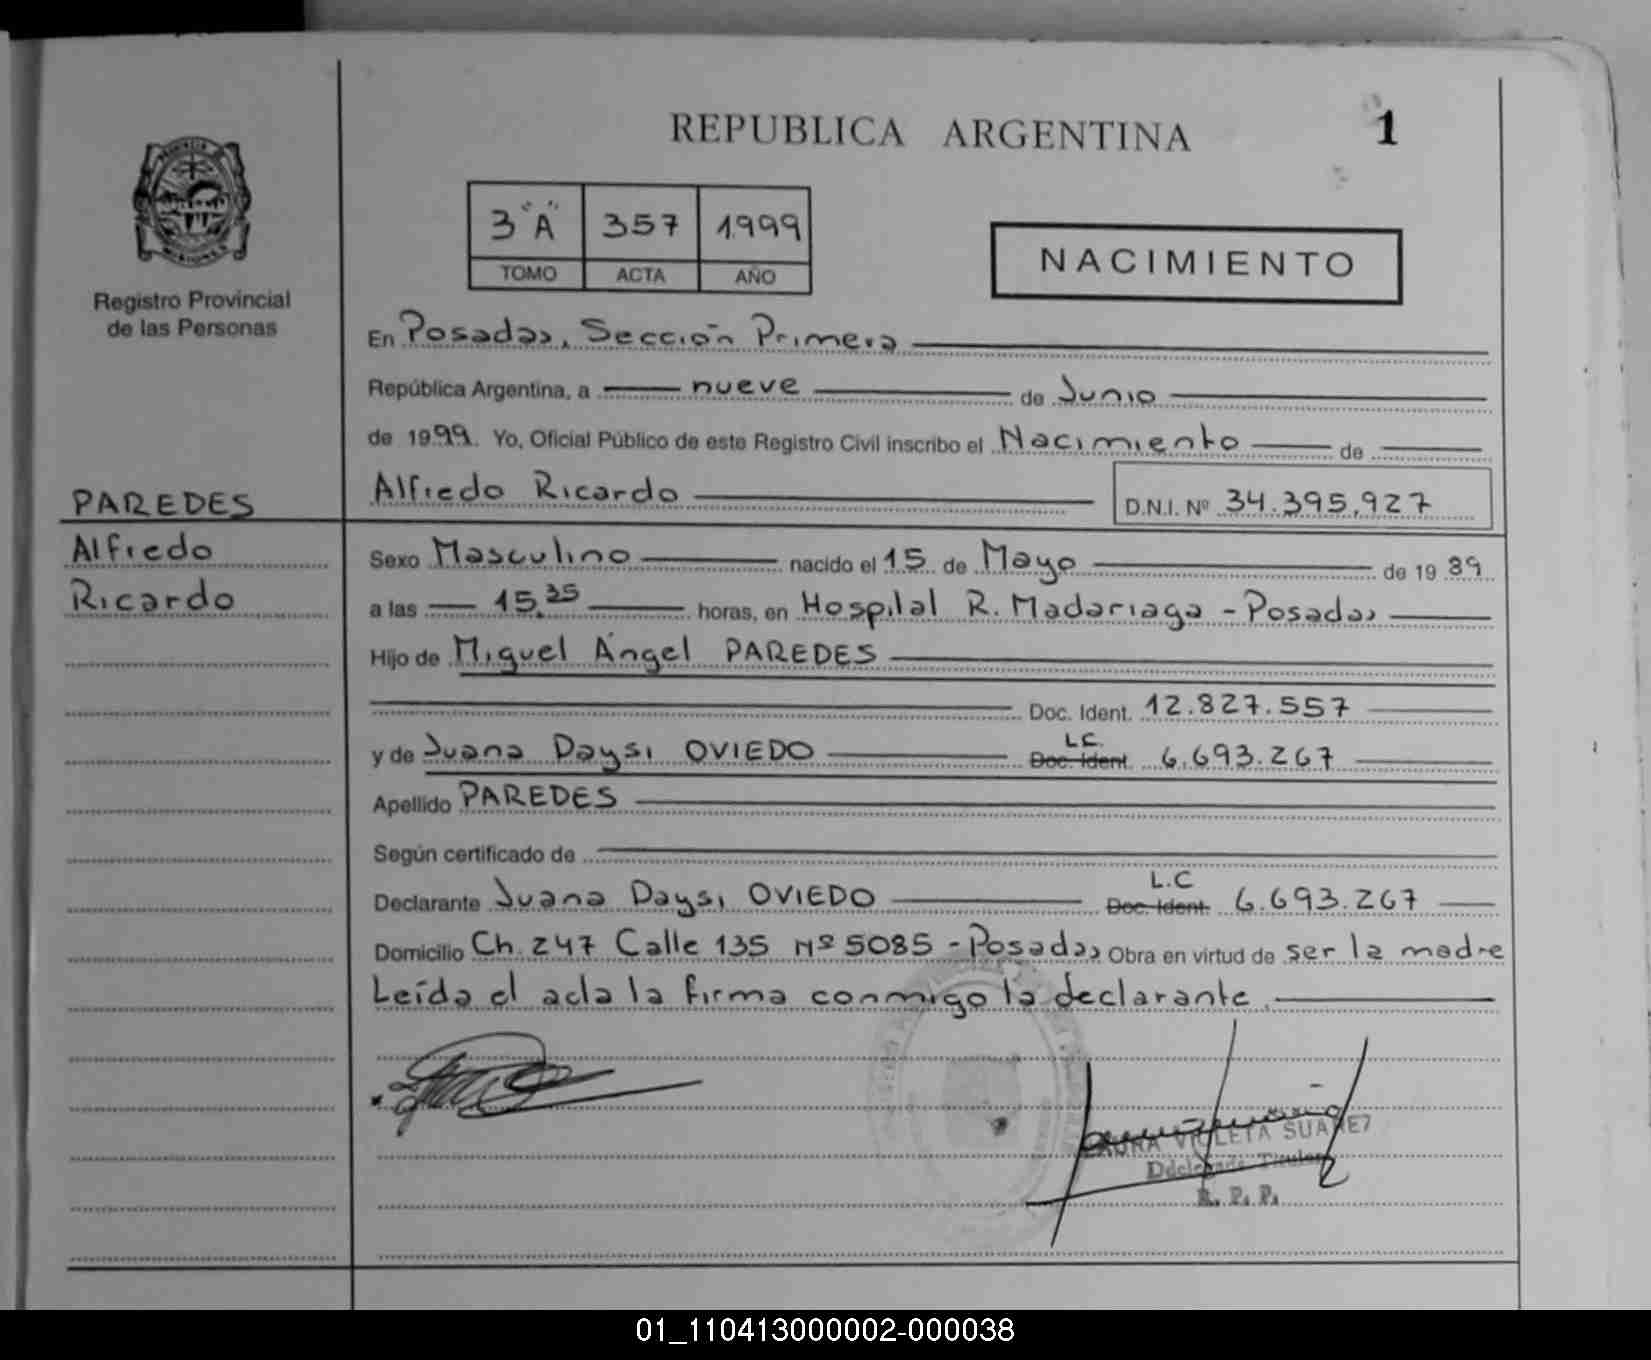 REPUBLICA ARGENTINA
1
3 "A" 357 1999
TOMO ACTA AÑO
NACIMIENTO
Registro Provincial
de las Personas
En Posadas, Sección Primera
República Argentina, a nueve de Junio
de 1999. Yo, Oficial Público de este Registro Civil inscribo el Nacimiento de
Alfredo Ricardo D.N.I. Nº 34.395.927
PAREDES
Alfredo
Ricardo
Sexo Masculino nacido el 15 de Mayo de 1989
a las 15.35 horas, en Hospital R. Madariaga - Posadas
Hijo de Miguel Ángel PAREDES
Doc. Ident. 12.827.557
y de Juana Daysi OVIEDO Doc. Ident. L.C. 6.693.267
Apellido PAREDES
Según certificado de
Declarante Juana Daysi OVIEDO Doc. Ident. L.C 6.693.267
Domicilio Ch. 247 Calle 135 Nº 5085 - Posadas Obra en virtud de ser la madre
Leída el acta la firma conmigo la declarante.
LAURA VIOLETA SUAREZ
Titular
R. P. P.
01_110413000002-000038